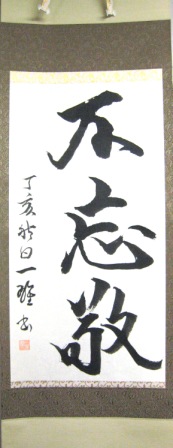 不忘敬
丁亥秋日一 書